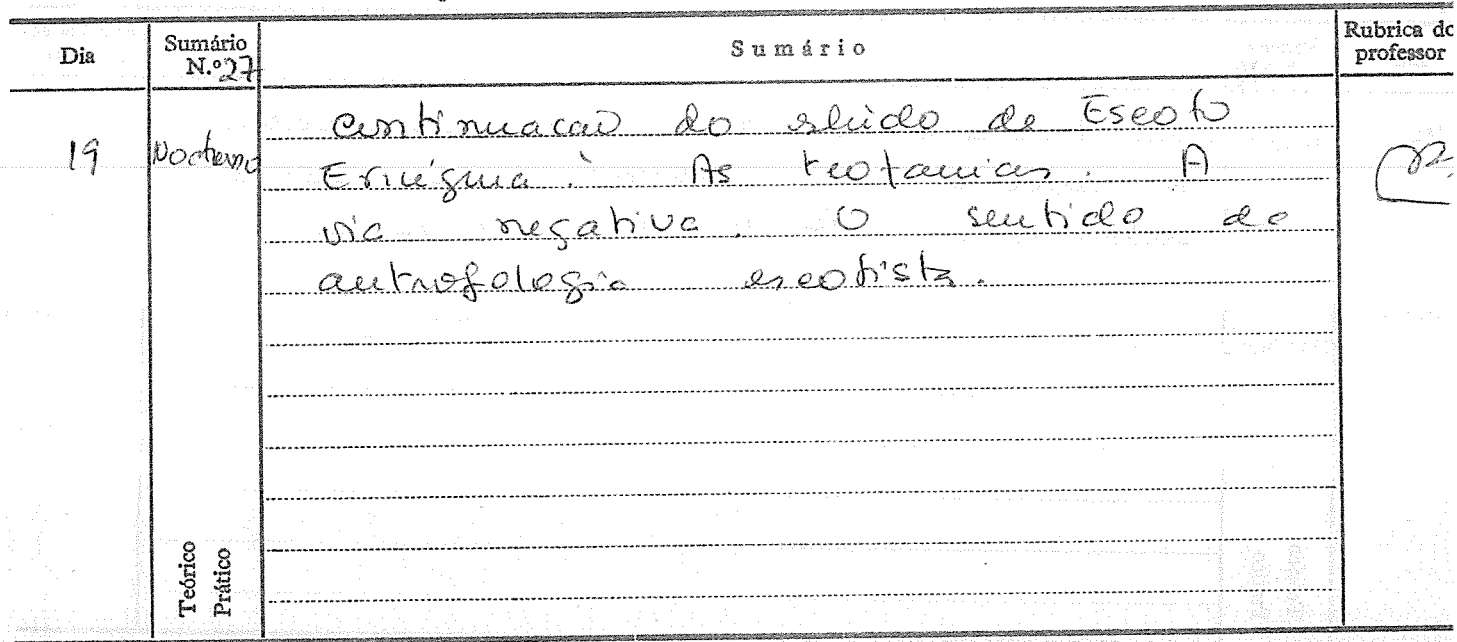 Dia
Sumário
N.º 27
Sumário
Rubrica do
professor
19
Nocturno
Continuação do estudo de Escoto
Eriúgena. As teofanias. A
via negativa. O sentido da
antropologia escotista.
Teórico
Prático